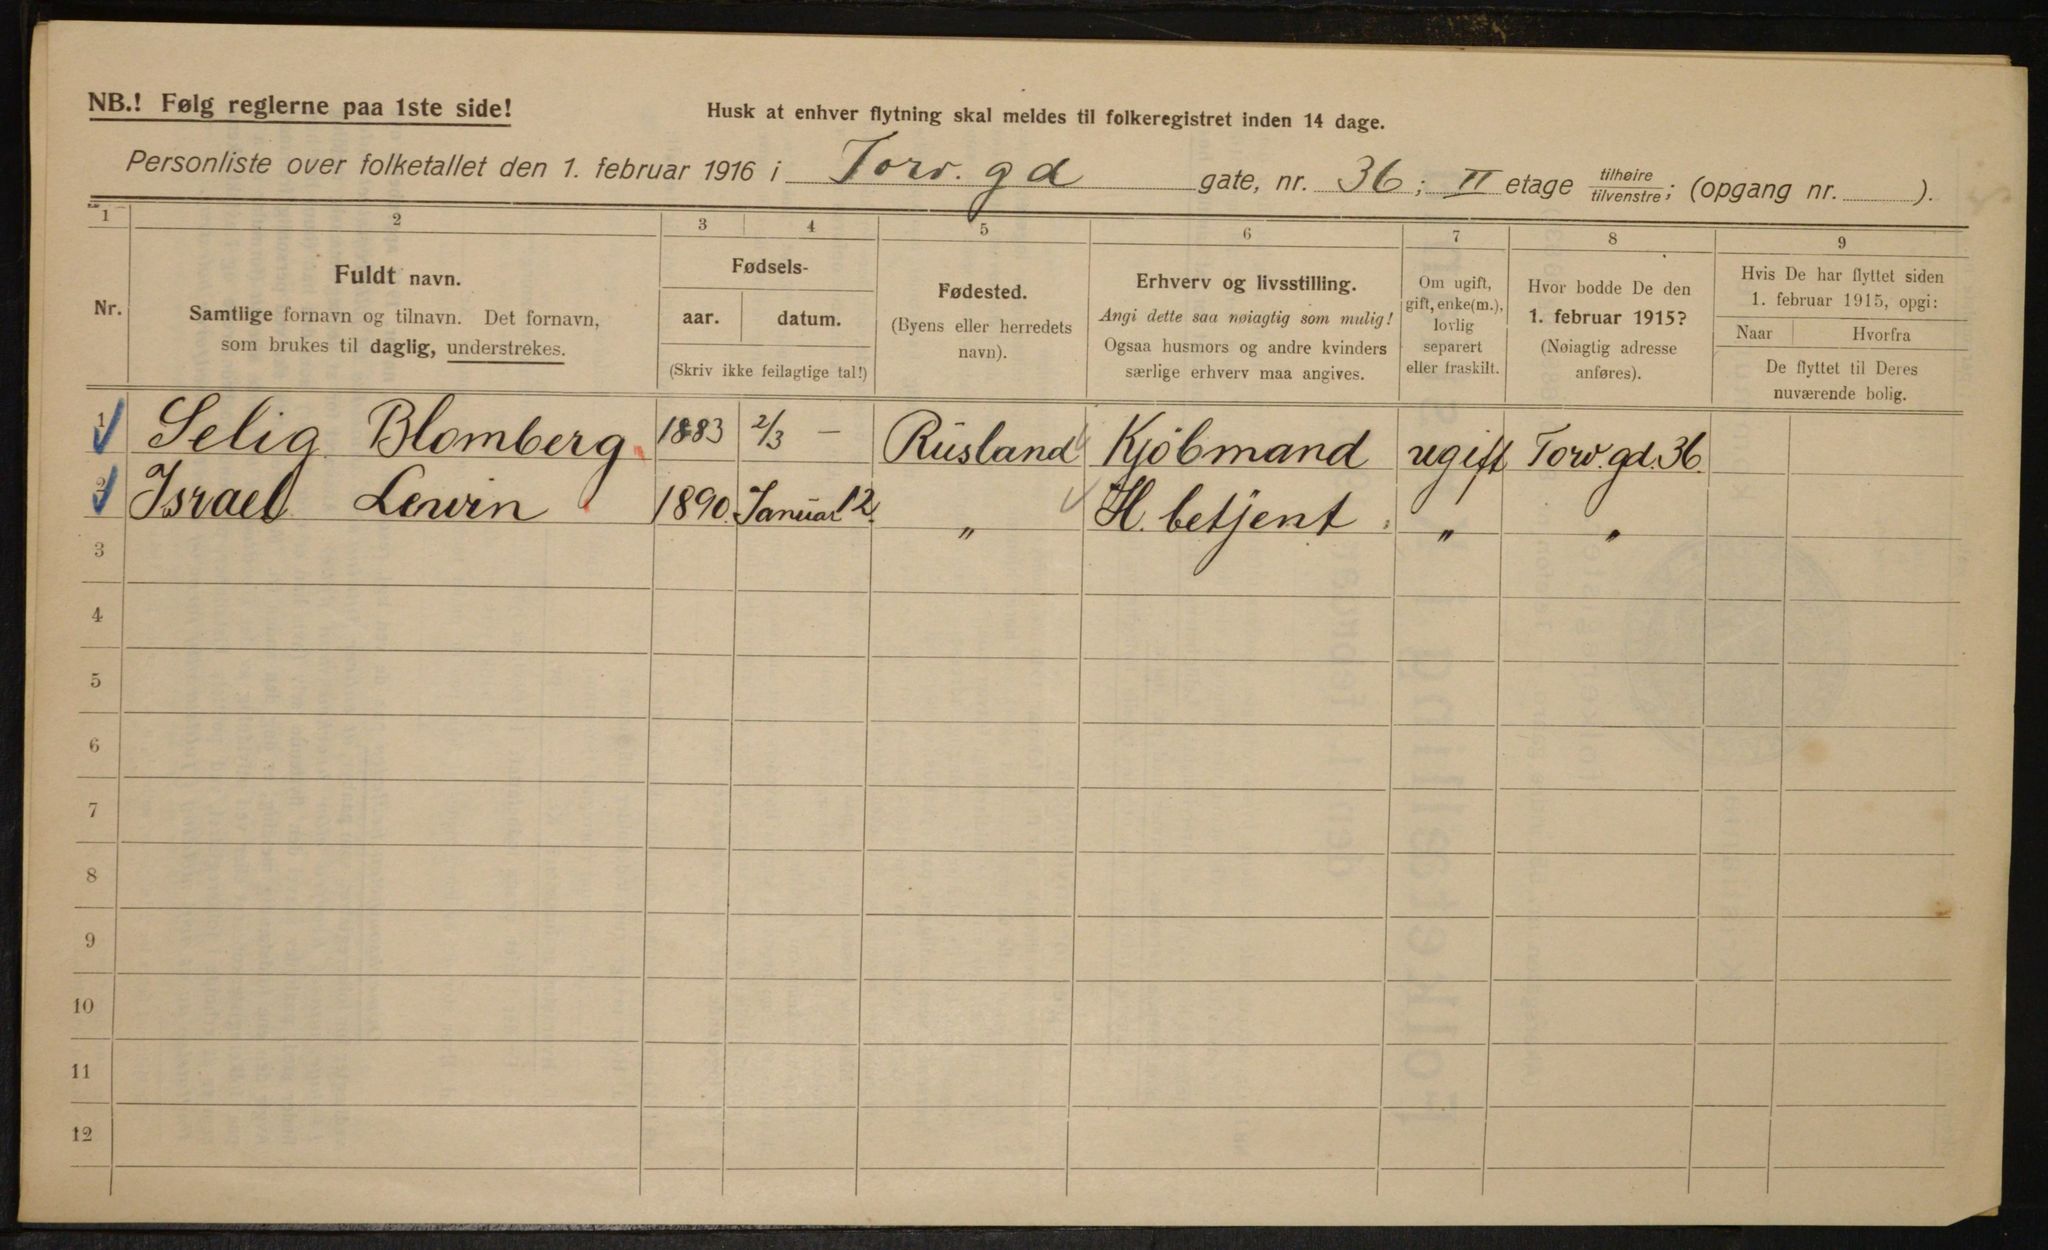 NB.! Følg reglerne paa 1ste side!
Husk at enhver flytning skal meldes til folkeregistret inden 14 dage.
Personliste over folketallet den 1. februar 1916 i Torv. gd gate, nr. 36; II etage tilhøire/tilvenstre; (opgang nr. ).
1 2 3 4 5 6 7 8 9
Nr.
Fuldt navn.
Samtlige fornavn og tilnavn. Det fornavn,
som brukes til daglig, understrekes.
Fødsels-
aar. datum.
(Skriv ikke feilagtige tal!)
Fødested.
(Byens eller herredets
navn).
Erhverv og livsstilling.
Angi dette saa nøiagtig som mulig!
Ogsaa husmors og andre kvinders
særlige erhverv maa angives.
Om ugift,
gift, enke(m.),
lovlig
separert
eller fraskilt.
Hvor bodde De den
1. februar 1915?
(Nøiagtig adresse
anføres).
Hvis De har flyttet siden
1. februar 1915, opgi:
Naar Hvorfra
De flyttet til Deres
nuværende bolig.
1 Selig Blomberg 1883 2/3 — Rusland Kjöbmand ugift Torv. gd. 36.
2 Israel Lewin 1890. Januar 12. „ H. betjent „ „
3
4
5
6
7
8
9
10
11
12